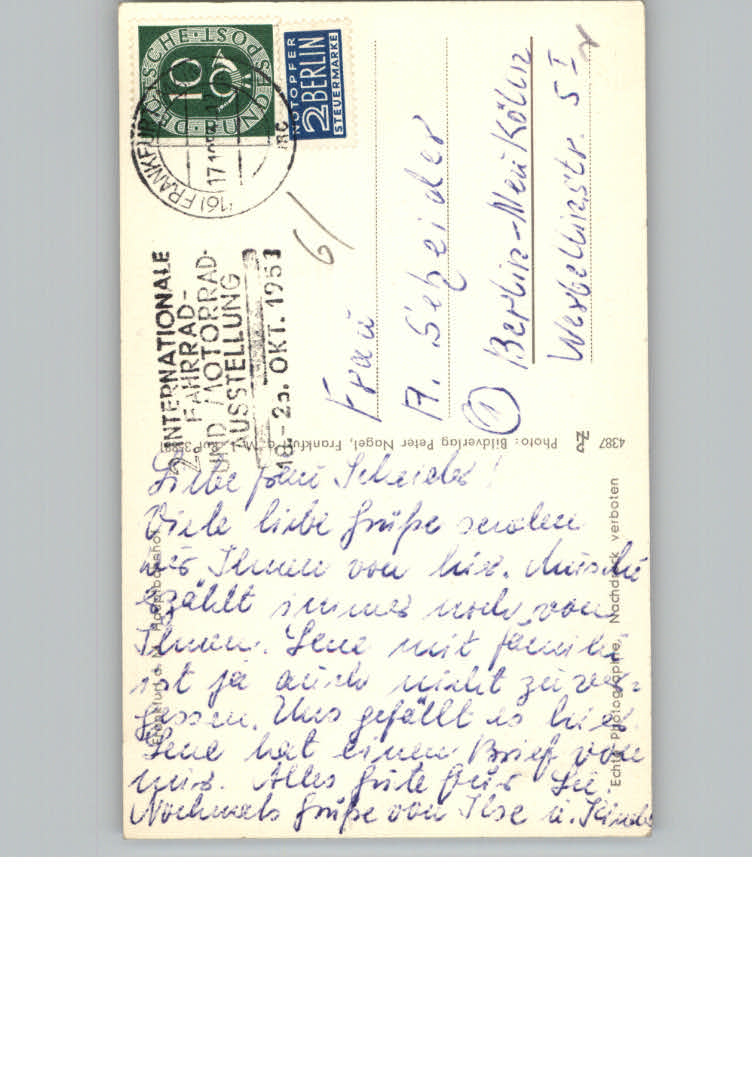 DEUTSCHE BUNDESPOST
10
NOTOPFER
2 BERLIN
STEUERMARKE
(16) FRANKFURT
17.10.53
INTERNATIONALE
FAHRRAD-
UND MOTORRAD-
AUSSTELLUNG
18.-25. OKT. 1953
6/
Frau
A. Scheider
① Berlin-Neukölln
Werbellinstr. 5 I
4387
Photo: Bildverlag Peter Nagel, Frankfurt a. M.
Echte Photographie, Nachdruck verboten
Frankfurt a. M. Hauptbahnhof
Liebe Frau Scheider!
Viele liebe Grüße senden
wir Ihnen von hier.
erzählt immer noch von
Ihnen. Lene mit Familie
ist ja auch nicht zu ver-
gessen. Uns gefällt es hier.
Lene hat einen Brief von
mir. Alles Gute für Sie.
Nochmals Grüße von Ilse u. Kinder